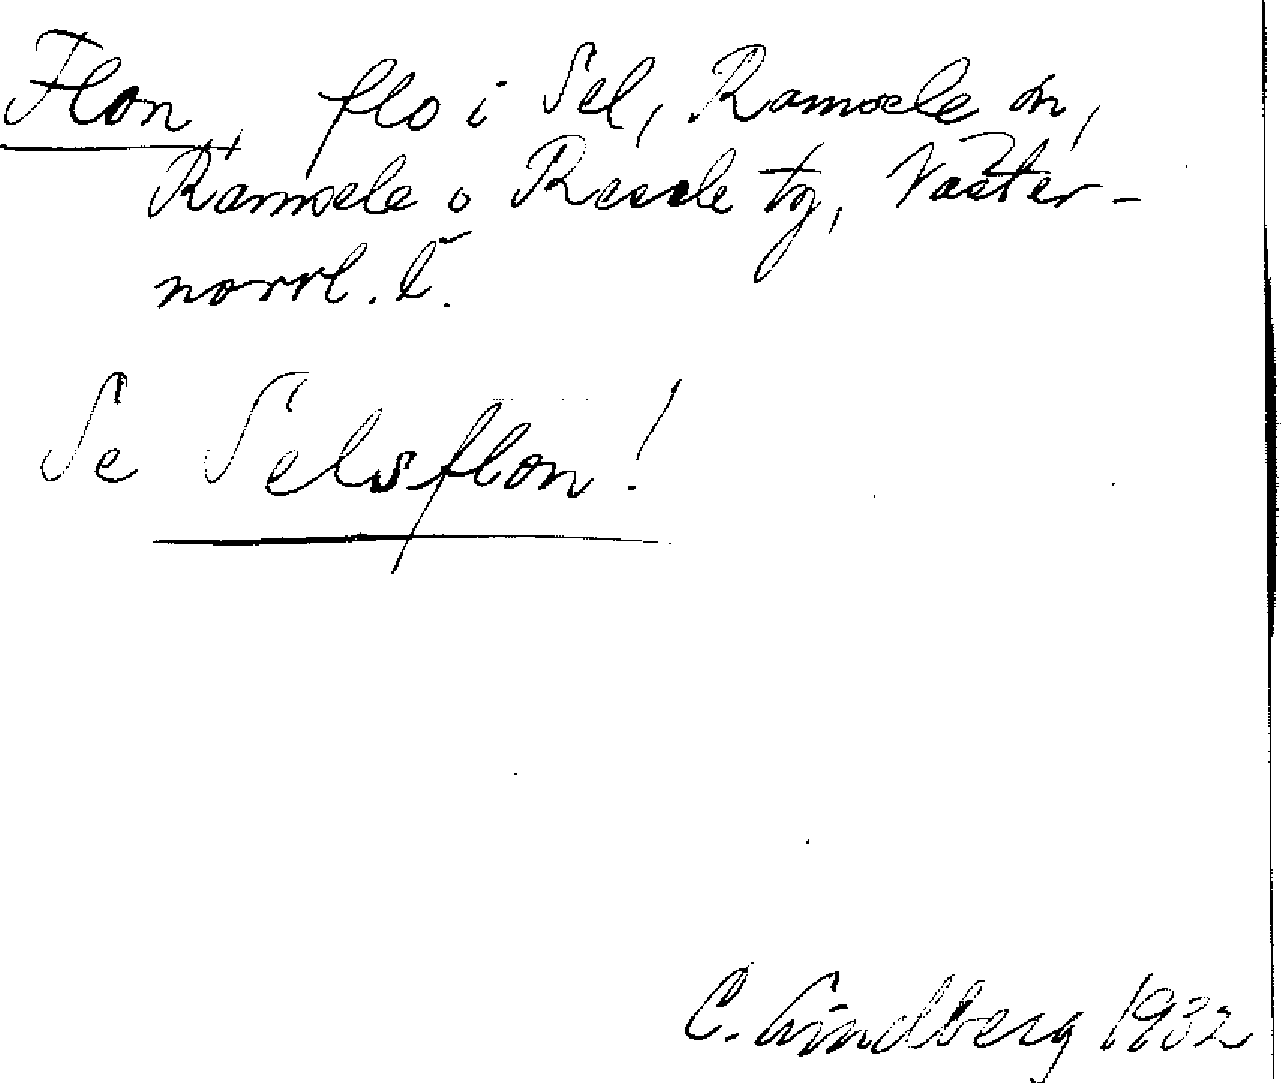 Flon, flo i Sel, Ramsele sn,
Ramsele o Resele tg, Väster-
norrl. l.
Se Selsflon!
C. Lindberg 1932